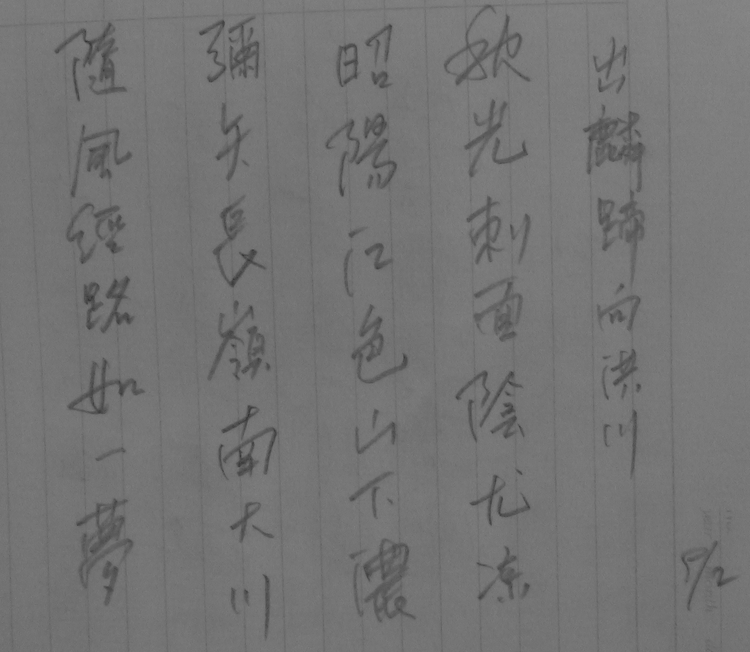 出麟蹄向洪川
秋光刺面陰尤凉
昭陽江色山下濃
彌矢長嶺南大川
隨風經路如一夢
9/2